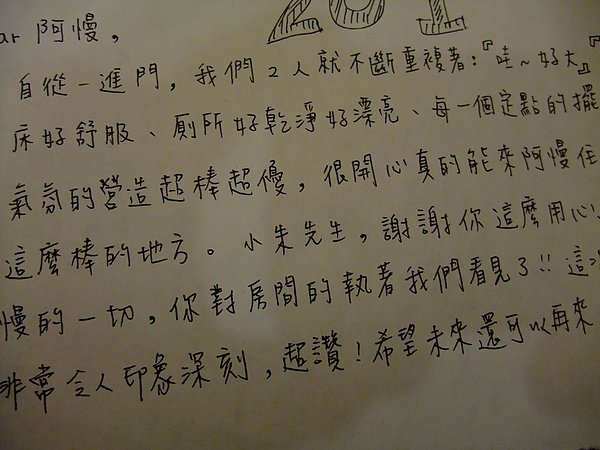 201
ar 阿慢，
自從一進門，我們2人就不斷重複著：『哇~好大』『
床好舒服、廁所好乾淨好漂亮、每一個定點的擺
氣氛的營造超棒超優，很開心真的能來阿慢住
這麼棒的地方。小朱先生，謝謝你這麼用心
慢的一切，你對房間的執著我們看見了!! 這
非常令人印象深刻，超讚！希望未來還可以再來